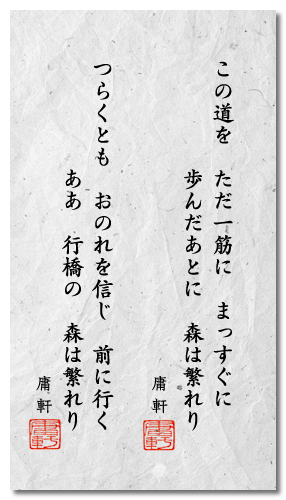 この道を　ただ一筋に　まっすぐに
歩んだあとに　森は繁れり
庸軒
つらくとも　おのれを信じ　前に行く
ああ　行橋の　森は繁れり
庸軒